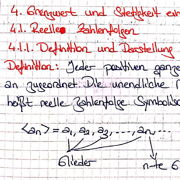 4. Grenzwert und Stetigkeit ein
4.1. Reelle Zahlenfolgen
4.1.1. Definition und Darstellung
Definition: Jeder positiven ganze
an zugeordnet. Die unendliche
heißt reelle Zahlenfolge. Symbolisc
<an> = a1, a2, a3, ..., an, ...
Glieder n-te G